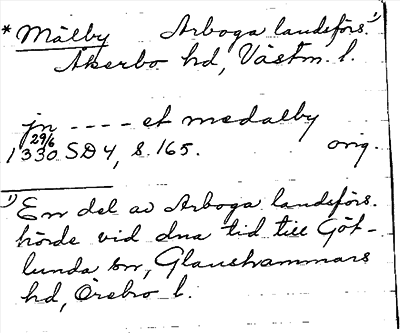 * Målby Arboga landsförs. 1)
Åkerbo hd, Västm. l.
jn ---- et medalby
1330 29/6 SD 4, s. 165. orig.
1) En del av Arboga landsförs.
hörde vid dna tid till Göt-
lunda sn, Glanshammars
hd, Örebro l.